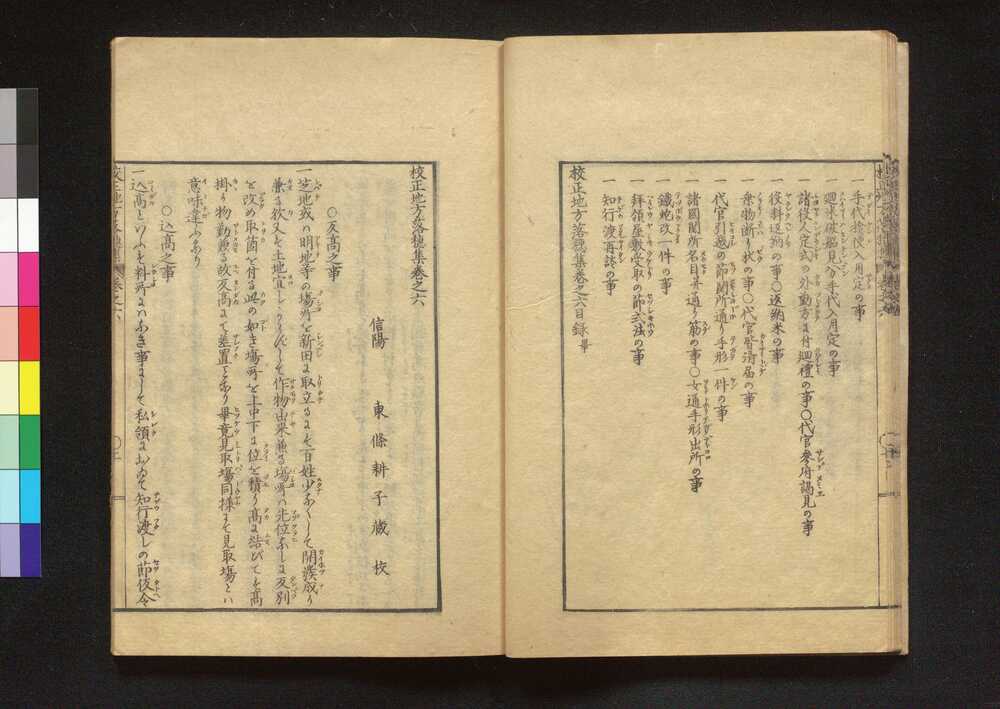 一 手代検使入用定の事
一 廻米破船見分手代入用定の事
一 諸役人定式の外勤方に付廻禮の事〇代官参府謁見の事
一 役料返納の事〇返納米の事
一 乗物断り状の事〇代官
一 代官引越の節関所通り手形一件の事
一 諸國関所名目并通り筋の事〇女通手形出所の事
一 鐵炮改一件の事
一 拝領屋敷受取の節式法の事
一 知行渡再談の事
校正地方落穂集巻之六目録畢
校正地方落穂集巻之六
信陽 東條耕子蔵校
〇反高之事
一 芝地或ハ明地等の場所を新田に取立るにも百姓少なくして開発成り
兼る欤又ハ土地宜しからずして作物出来兼る場所ハ先位なしに反別
を改め取箇を付る此の如き場所を上中下に位を積り高に結びても高
掛り物勤兼る故反高にて差置事あり畢竟見取場同様にて見取場とハ
意味違ふなり
〇込高之事
一 込高といふハ料所にハなき事にして私領にあつて知行渡しの節仮令
校正地方落穂集 巻之六